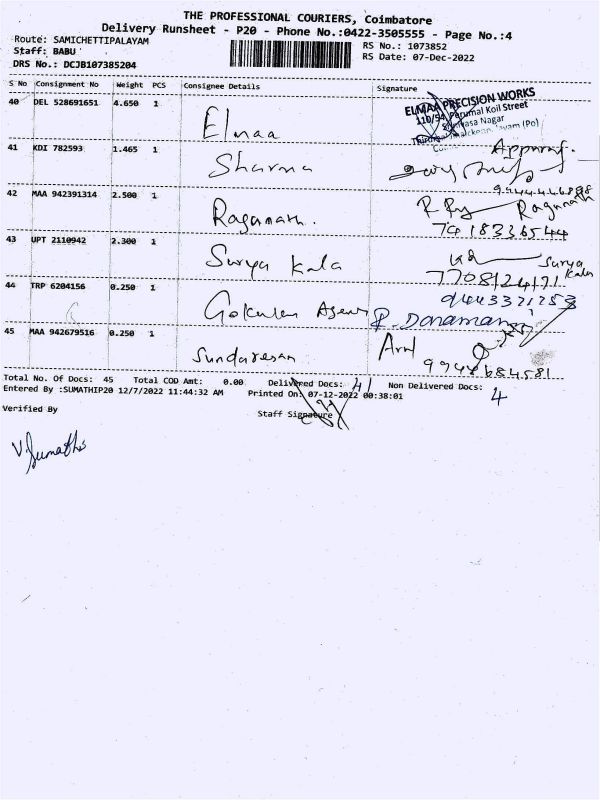 THE PROFESSIONAL COURIERS, Coimbatore
Delivery Runsheet - P20 - Phone No.:0422-3505555 - Page No.:4
Route: SAMICHETTIPALAYAM
RS No.: 1073852
Staff: BABU
RS Date: 07-Dec-2022
DRS No.: DCJB107385204
S No Consignment No Weight PCS Consignee Details Signature
40 DEL 528691651 4.650 1 Elmaa
ELMAA PRECISION WORKS
110/54, Perumal Koil Street
Nagar
41 KDI 782593 1.465 1 Sharma
42 MAA 942391314 2.500 1 Ragunath. Ragunath
7418336544
43 UPT 2110942 2.300 1 Surya Kala Surya Kala
7708124171
44 TRP 6204156 0.250 1 Gokulan
9443321253
45 MAA 942679516 0.250 1 Sundaresan
Total No. Of Docs: 45 Total COD Amt: 0.00 Delivered Docs: 41 Non Delivered Docs: 4
Entered By :SUMATHIP20 12/7/2022 11:44:32 AM Printed On: 07-12-2022 00:38:01
Verified By Staff Signature
V. Sumathi